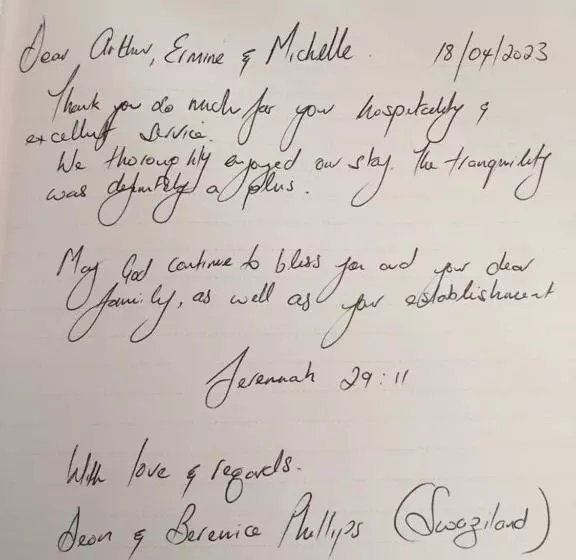 Dear Arthur, Ermine & Michelle. 18/04/2023
Thank you so much for your hospitality &
excellent service.
We thoroughly enjoyed our stay. The tranquility
was definitely a plus.
May God continue to bless you and your dear
family, as well as your establishment
Jeremiah 29:11
With love & regards.
Deon & Berenice Phillips (Swaziland)